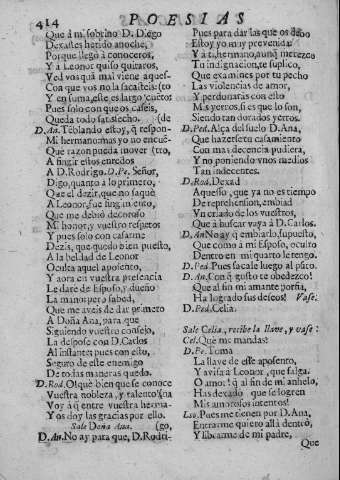 414
POESIAS
Que à mi sobrino D. Diego
Dexasteis herido anoche,
Porque llegò à conoceros,
Y à Leonor quiso quitaros,
Ved vos quà mal viene aquesso
Con que vos no la sacasteis: (to
Y en suma, este es largo cuẽto
Pues solo con que os caseis,
Queda todo satisfecho. (de
D. An. Tẽblando estoy, q̃ respon-
Mi hermano, mas yo no encuẽ-
Que razon pueda mover (tro,
A fingir estos enredos
A D. Rodrigo. D. Pe. Señor,
Digo, quanto à lo primero,
Que el dezir, que no saquè
A Leonor, fue fingimiento,
Que me debiò decoroso
Mi honor, y vuestro respeto
Y pues solo con casarme
Dezis, que quedo bien puesto,
A la beldad de Leonor
Oculta aquel aposento,
Y aora en vuestra presencia
Le darè de Esposo, y dueño
La mano; pero sabed,
Que me aveis de dar primero
A Doña Ana, para que
Siguiendo vuestro consejo,
La despose con D. Carlos
Al instante; pues con esto,
Seguro de este enemigo
De todas maneras quedo.
D. Rod. O! què bien que se conoce
Vuestra nobleza, y talento!
Voy à q̃ entre vuestra herma-
Y os doy las gracias por ello.
Sale Doña Ana. (go,
D. An. No ay para que, D. Rodri-
Pues para dar las que os debo
Estoy yo muy prevenida:
Y à ti hermano, aunq̃ merezco
Tu indignacion, te suplico,
Que examines por tu pecho
Las violencias de amor,
Y perdonaràs con esto
Mis yerros, si es que lo son,
Siendo tan dorados yerros.
D. Ped. Alça del suelo D. Ana,
Que hazerse tu casamiento
Con mas decencia pudiera,
Y no poniendo unos medios
Tan indecentes.
D. Rod. Dexad
Aquesso, que ya no es tiempo
De reprehension, embiad
Vn criado de los vuestros,
Que à buscar vaya à D. Carlos.
D. An. No ay q̃ embiarlo, supuesto,
Que como à mi Esposo, oculto
Dentro en mi quarto le tengo.
D. Ped. Pues sacale luego al pũto.
D. An. Con q̃ gusto te obedezco!
Que al fin mi amante porfia,
Ha logrado sus deseos! Vase.
D. Ped. Celia.
Sale Celia, recibe la llave, y vase:
Cel. Què me mandas?
D. Pe. Toma
La llave de esse aposento,
Y avisa à Leonor, que salga.
O amor! q̃ al fin de mi anhelo,
Has dexado que se logren
Mis amorosos intentos!
Leo. Pues me tienen por D. Ana,
Entrarme quiero allà dentro,
Y librarme de mi padre,
Que